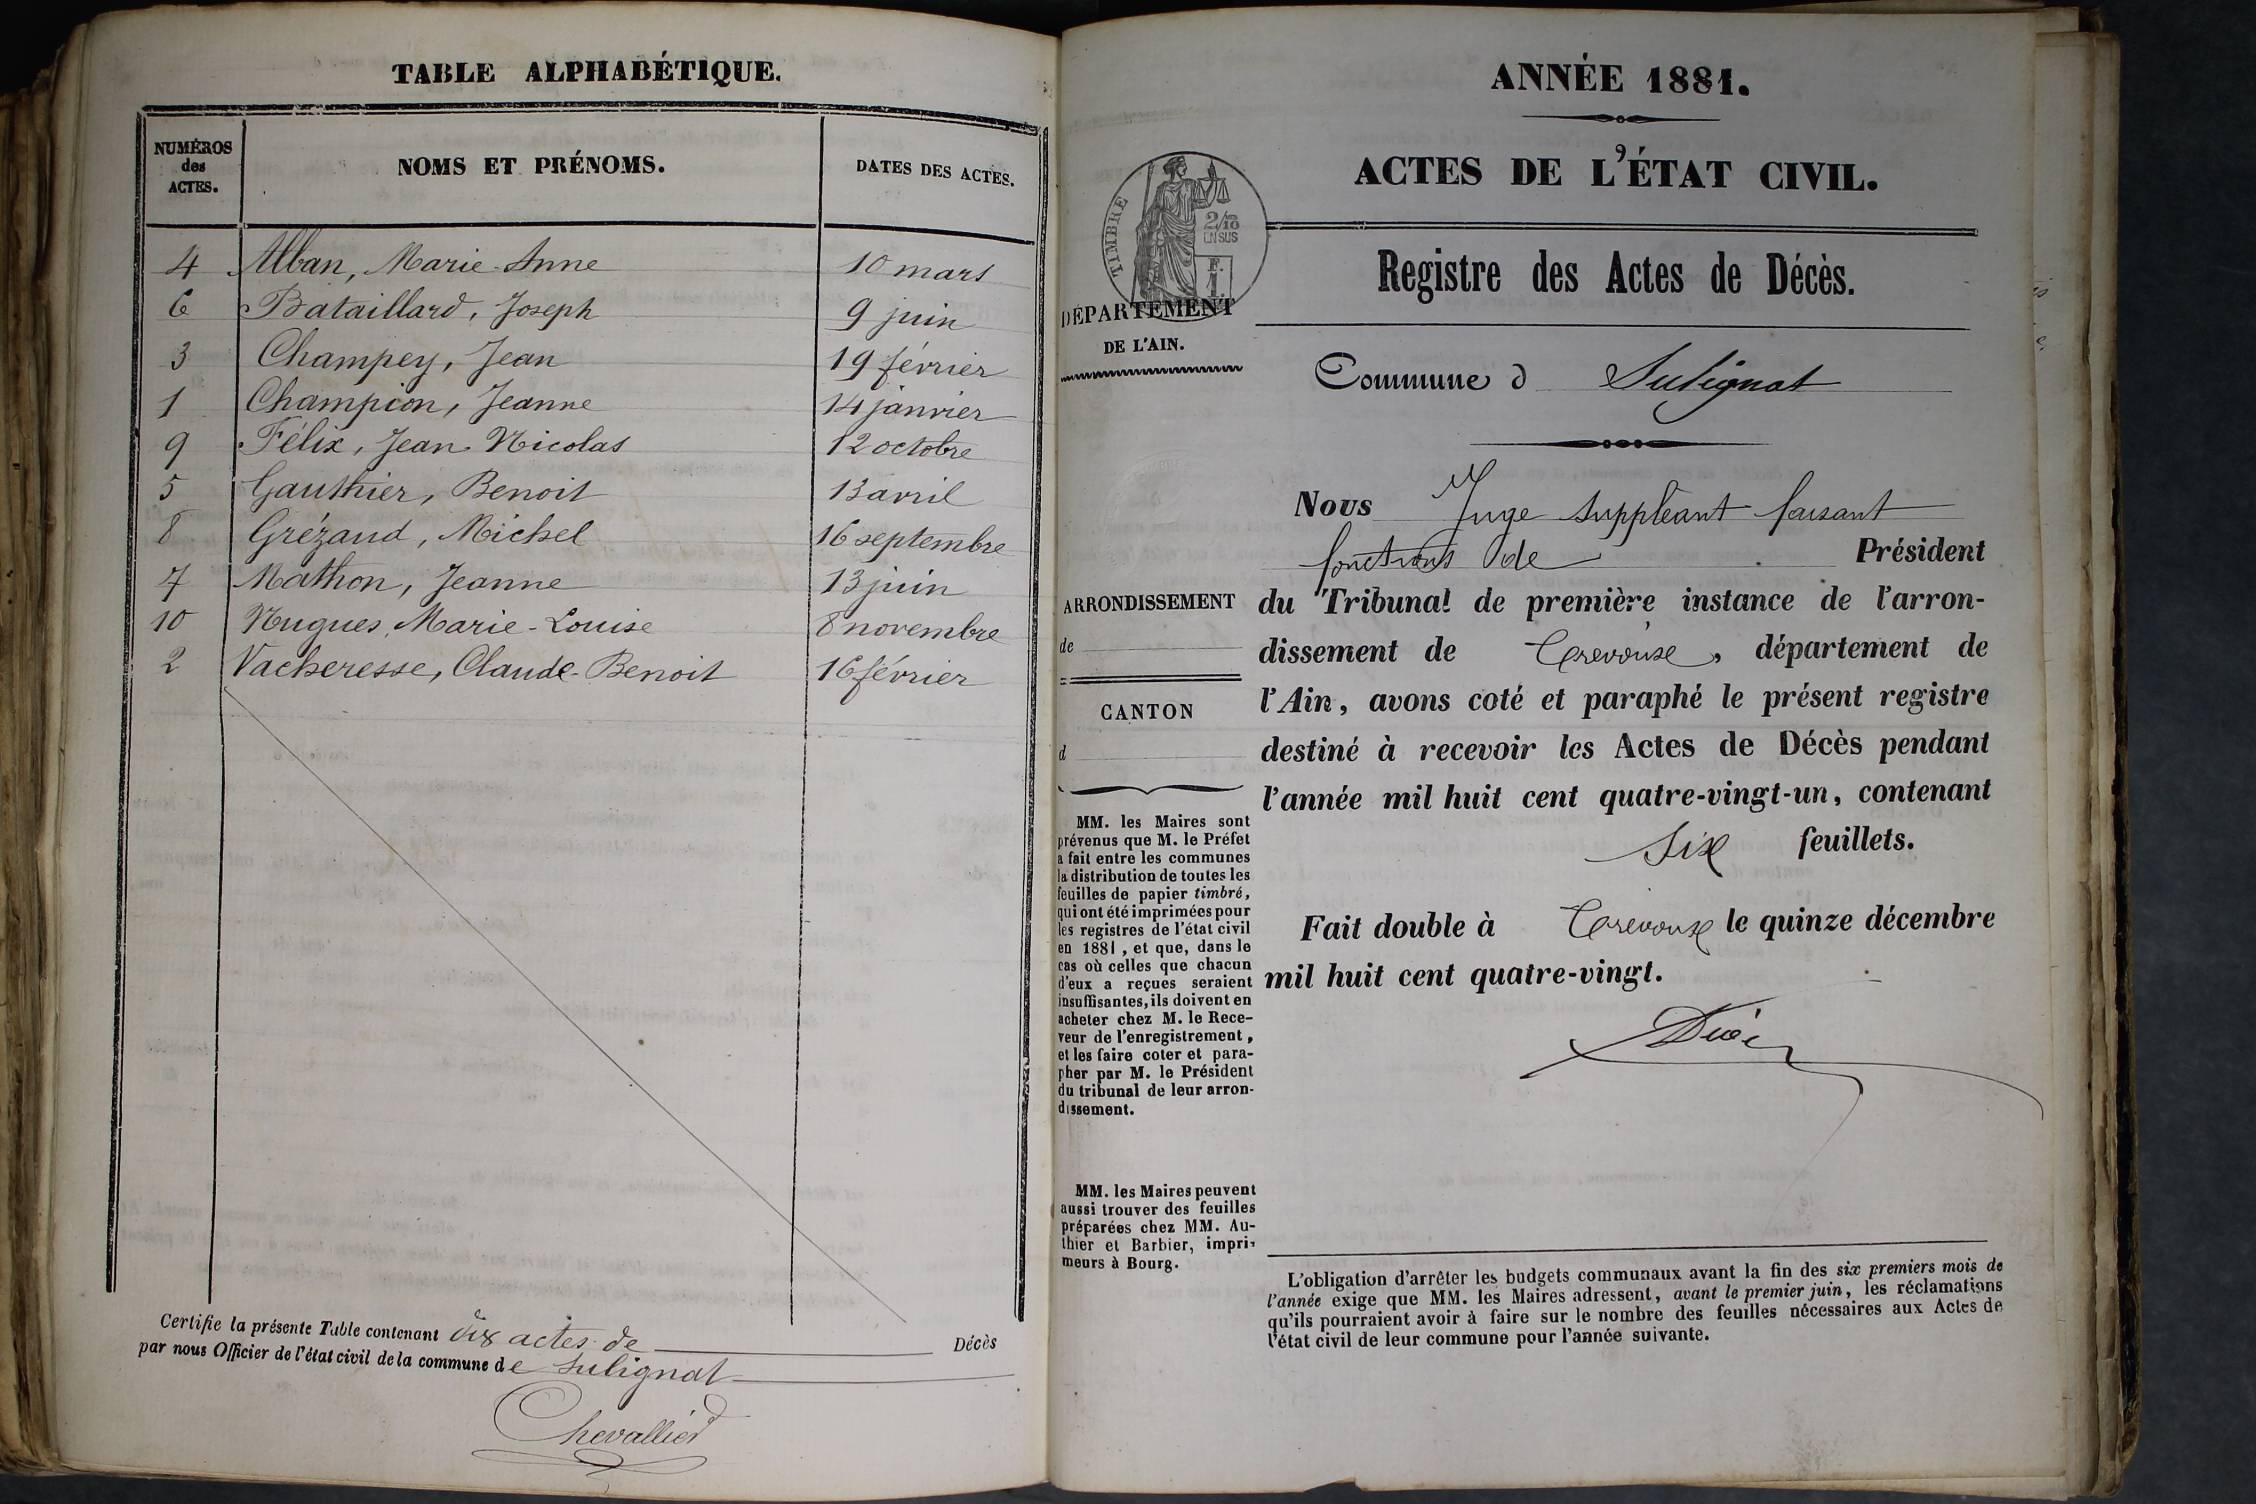 TABLE ALPHABÉTIQUE.
NUMÉROS des ACTES. NOMS ET PRÉNOMS. DATES DES ACTES.
4 Alban, Marie-Anne 10 mars
6 Bataillard, Joseph 9 juin
3 Champey, Jean 19 février
1 Champion, Jeanne 14 janvier
9 Félix, Jean-Nicolas 12 octobre
5 Gauthier, Benoit 13 avril
8 Grézaud, Michel 16 septembre
7 Mathon, Jeanne 13 juin
10 Nugues, Marie-Louise 8 novembre
2 Vacheresse, Claude-Benoit 16 février
Certifie la présente Table contenant dix actes de Décès
par nous Officier de l'état civil de la commune de Sulignat
Chevallier
ANNÉE 1881.
ACTES DE L'ÉTAT CIVIL.
TIMBRE
2/10
EN SUS
F.
1.
Registre des Actes de Décès.
DÉPARTEMENT
DE L'AIN.
Commune d Sulignat
Nous Juge suppléant faisant
fonctions de Président
du Tribunal de première instance de l'arron-
dissement de Trevoux, département de
l'Ain, avons coté et paraphé le présent registre
destiné à recevoir les Actes de Décès pendant
l'année mil huit cent quatre-vingt-un, contenant
six feuillets.
Fait double à Trevoux le quinze décembre
mil huit cent quatre-vingt.
ARRONDISSEMENT
de
CANTON
d
MM. les Maires sont
prévenus que M. le Préfet
a fait entre les communes
la distribution de toutes les
feuilles de papier timbré,
qui ont été imprimées pour
les registres de l'état civil
en 1881, et que, dans le
cas où celles que chacun
d'eux a reçues seraient
insuffisantes, ils doivent en
acheter chez M. le Rece-
veur de l'enregistrement,
et les faire coter et para-
pher par M. le Président
du tribunal de leur arron-
dissement.
MM. les Maires peuvent
aussi trouver des feuilles
préparées chez MM. Au-
thier et Barbier, impri-
meurs à Bourg.
L'obligation d'arrêter les budgets communaux avant la fin des six premiers mois de
l'année exige que MM. les Maires adressent, avant le premier juin, les réclamations
qu'ils pourraient avoir à faire sur le nombre des feuilles nécessaires aux Actes de
l'état civil de leur commune pour l'année suivante.